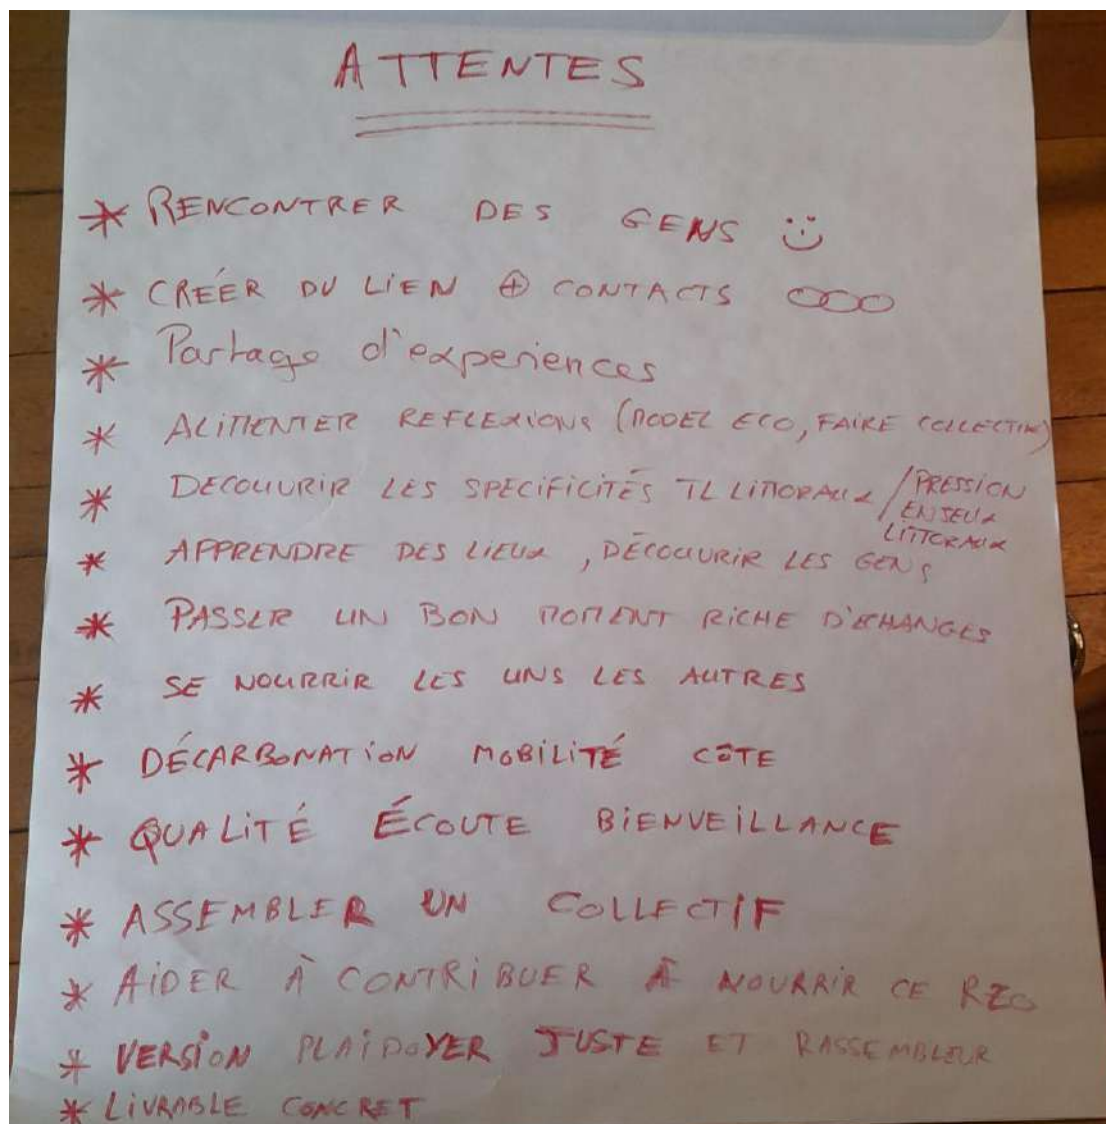 ATTENTES
* RENCONTRER DES GENS
* CRÉER DU LIEN ⊕ CONTACTS
* Partage d'experiences
* ALIMENTER REFLEXIONS (MODEL ECO, FAIRE COLLECTIF)
* DECOUVRIR LES SPECIFICITÉS TL LITTORAUX / PRESSION
/ ENJEUX
LITTORAUX
* APPRENDRE DES LIEUX, DÉCOUVRIR LES GENS
* PASSER UN BON MOMENT RICHE D'ECHANGES
* SE NOURRIR LES UNS LES AUTRES
* DÉCARBONATION MOBILITÉ CÔTE
* QUALITÉ ÉCOUTE BIENVEILLANCE
* ASSEMBLER UN COLLECTIF
* AIDER À CONTRIBUER À NOURRIR CE RZO
* VERSION PLAIDOYER JUSTE ET RASSEMBLEUR
* LIVRABLE CONCRET